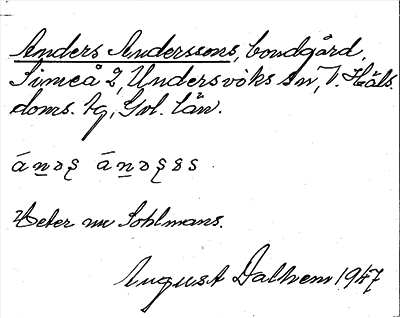 Anders Anderssons, bondgård,
Simeå 2, Undersviks sn, V. Häls.
doms. tg, Gvl. län.
Heter nu Sohlmans.
August Dalhem 1947